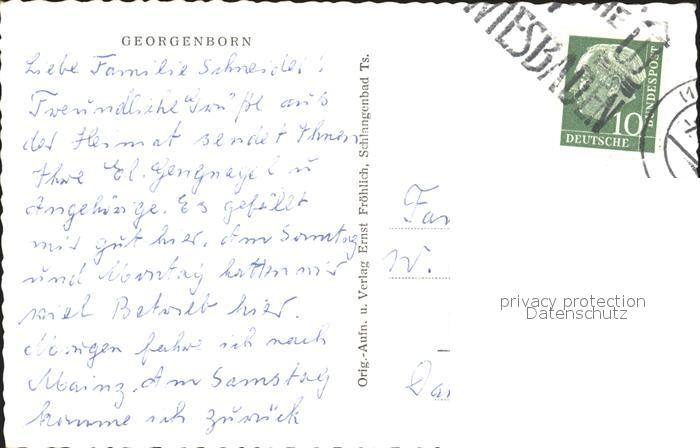 GEORGENBORN
Liebe Familie Schneider!
Freundliche Grüße aus
der Heimat sendet Ihnen
Ihre El. Gengnagel u
Angehörige. Es gefällt
mir gut hier. Am Sonntag
und Montag hatten wir
viel Betrieb hier.
Morgen fahre ich nach
Mainz. Am Samstag
komme ich zurück
Orig.-Aufn. u. Verlag Ernst Fröhlich, Schlangenbad Ts.
WIESBADEN
10
DEUTSCHE
BUNDESPOST
Fa
W.
Da
privacy protection
Datenschutz